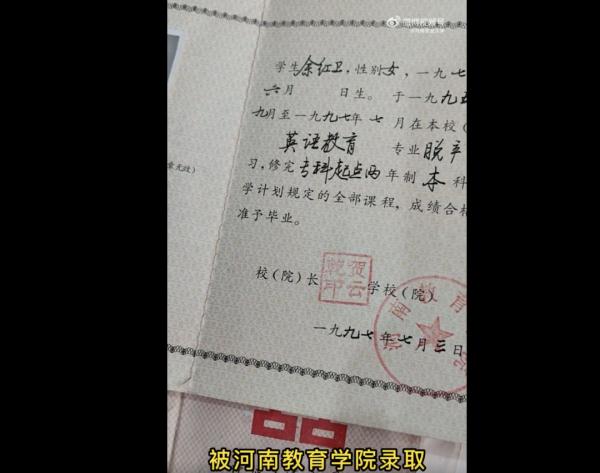 学生余红卫，性别女，一九七
六月 日生。于一九九五
九月至一九九七年七月在本校（
英语教育 专业脱产
习，修完专科起点两年制本科
学计划规定的全部课程，成绩合格
准予毕业。
校（院）长
贺云乾印
学校（院）
河南教育 院
一九九七年七月三日
囍
被河南教育学院录取